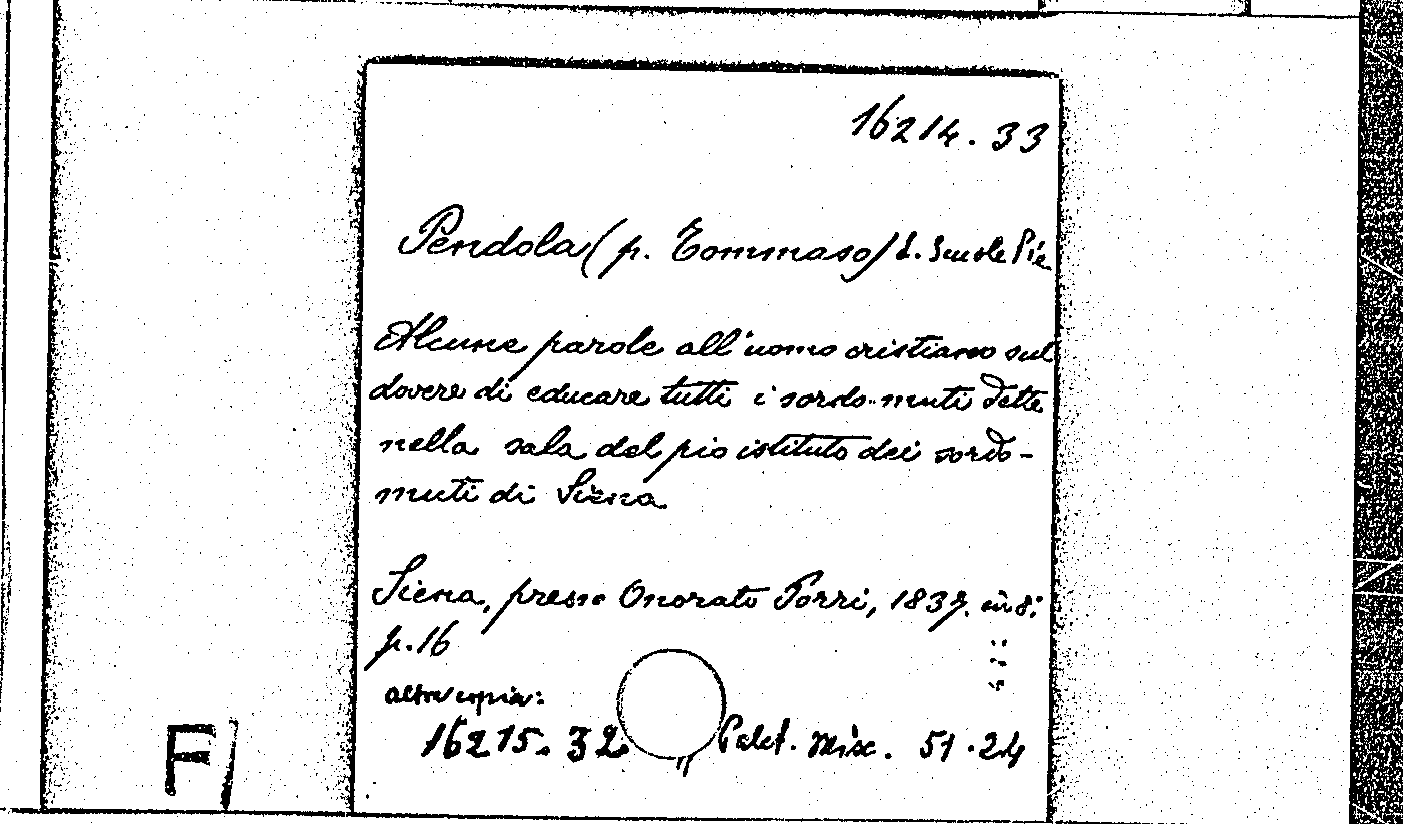 16214.33
Pendola (p. Tommaso) d. Scuole Pie
Alcune parole all'uomo cristiano sul
dovere di educare tutti i sordo-muti dette
nella sala del pio istituto dei sordo-
muti di Siena
Siena, presso Onorato Porri, 1837. in 8:
p. 16
altra copia:
16215.32 Misc. 51.24
F